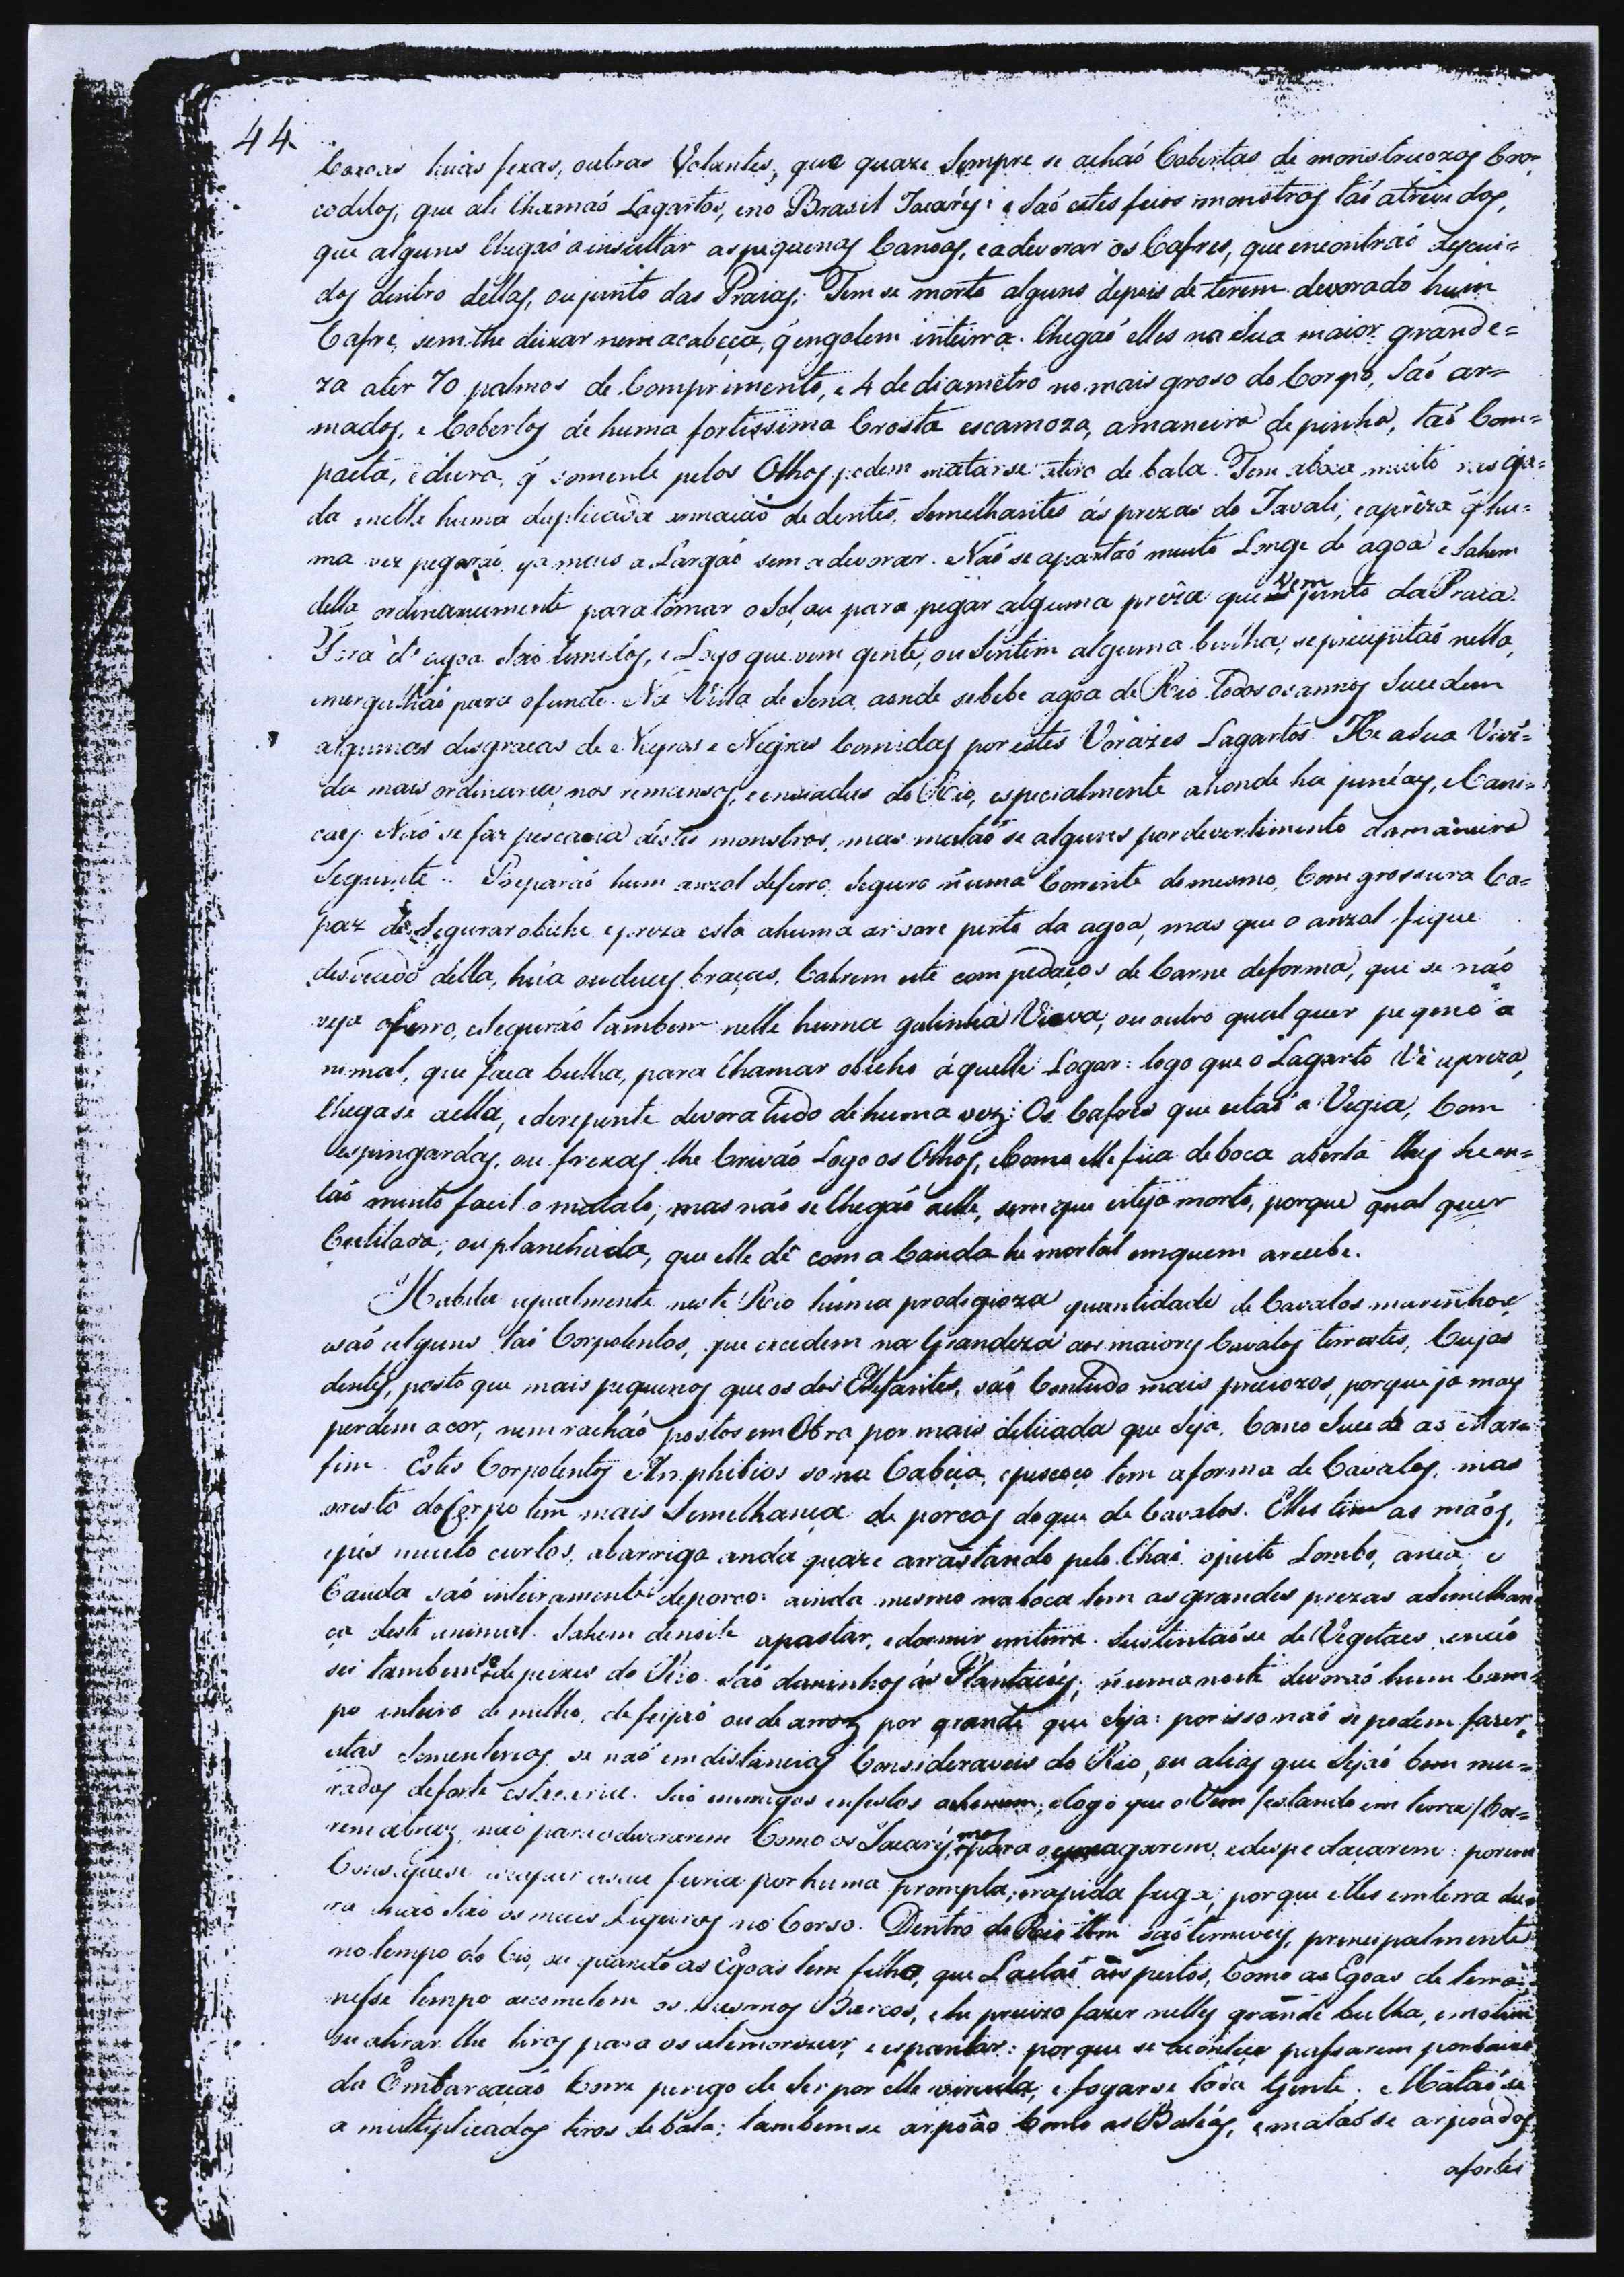 44
Coroas huãs fixas, outras Volantes, que quaze Sempre se achaõ Cobertas de monstruozos Cro=
codilos, que ali Chamaõ Lagartos, eno Brazil Jacaréz: e Saõ estes feios monstros taõ atrevidos,
que alguns Chegaõ ainsultar as pequenas Canoas, eadevorar os Cafres, que encontraõ descui=
dos dentro dellas, oujunto das Praias. Tem se morto alguns depois de terem devorado hum
Cafre, sem lhe deixar nem acabeça, q̃ engolem inteirra. Chegaõ elles na Sua maior grande=
za ater 70 palmos de Comprimento, e 4 de diametro no mais groso do Corpo, Saõ ar=
mados, e Cobertos de huma fortissima Crosta escamoza, amaneira de pinha, taõ Com=
pacta, edura, q̃ somente pelos Olhos podem matarse atiro de bala. Tem aboca muito rasga=
da enella huma duplicada armaçaõ de dentes Semelhantes ás prezas do Javali, eaprêza q̃ hu=
ma vez pegaraõ, ja mais a Largaõ sem a devorar. Naõ se apartaõ muito Longe da agoa e Sahem
della ordinariamente para tomar o Sol, ou para pegar alguma prêza que vem junto da Praia.
Fora d'agoa Saõ timidos, e Logo que vem gente, ou Sentem alguma bulha, se precipitaõ nella,
emergulhaõ para ofundo. Na Villa de Sena, aonde sebebe agoa do Rio todos os annos Sucedem
algumas desgraças de Negros e Negras Comidas por estes Vorazes Lagartos. He a Sua Vivẽ=
da mais ordinaria nos remansos, eenseadas do Rio, especialmente ahonde ha juncas, e Cani=
cas. Naõ se faz pescaria destes monstros, mas mataõ se alguns por devertimento damaneira
Seguinte. Preparaõ hum anzol deferro, Seguro numa Corrente domesmo, Com grossura Ca=
paz de Segurar obiche e preza esta ahuma arvore perto da agoa, mas que o anzol fique
desviado della, huã ouduas braças. Cobrem este com pedaços de Carne deforma, que se não
veja oferro, eseguraõ tambem nelle huma galinha Viva, ou outro qual quer pequeno a
nimal, que faca bulha, para Chamar obicho áquelle Logar: logo que o Lagarto Vê apreza,
Chegase aella, ederepente devora tudo dehuma vez: Os Cafres que estaõ a Vigia, Com
espingardas, ou frexas lhe Crivaõ Logo os Olhos, eComo elle fica deboca aberta lhes he en=
taõ muito facil o matalo, mas naõ se Chegaõ aelle, sem que esteja morto, porque qual quer
Cutilada, ou planchada, que elle dê com a Cauda he mortal enquem arecebe.
Habita igualmente neste Rio huma prodigioza quantidade de Cavalos marinhos,
esaõ alguns taõ Corpolentos, que excedem na Grandeza aos maiores Cavalos terrestes, Cujos
dentes, posto que mais pequenos que os dos Ellefantes, saõ Contudo mais preciozos, porque ja mais
perdem a cor, nem rachaõ postos em Obra por mais delicada que Seja, Como Sucede ao Mar=
fim. Estes Corpolentos Amphibios so na Cabeça, epescoço tem aforma de Cavalos, mas
oresto doCorpo tem mais Semelhança de porcos doque de Cavalos. Elles têm as mãos,
epés muito curtos, abarriga anda quaze arrastando pelo Chaõ. opeito Lombo, anca, e
Cauda saõ inteiramente deporco: ainda mesmo naboca tem as grandes prezas aSemelhan=
ça deste animal. Sahem denoite apastar, edormir emterra. Sustentaõse de Vegetaes, enaõ
sei tambem se de peixes do Rio. Saõ daninhos ás Plantações; n'uma noite devoraõ hum Cam=
po inteiro de milho, de feijaõ ou de arroz por grande que Seja: por isso naõ se podem fazer
estas Sementeiras, se naõ em distancias Consideraveis do Rio, ou alias que Sejaõ bem mu=
radas deforte estacaria. Saõ enemigos enfestos ao homem, elogo que o Vem /estando em terra/ Cor=
rem atraz, naõ para odevorarem Como os Jacaréz, mas para o esmagarem, edespedaçarem: porem
Conseguese escapar asua furia por huma prompta, erapida fuga; porque elles emterra du=
ra naõ Saõ os mais Ligeiros no Corso. Dentro do Rio Saõ temiveis, principalmente
no tempo do Cio, ou quando as Egoas têm filhos, que Lactaõ aos peitos, Como as Egoas de terra:
nesse tempo acometem os mesmos Barcos, ehe precizo fazer nelles grande bulha, emotim
ou atirar lhe tiros para os atemorizar, e espantar: porque se acontece passarem porbaixo
da Embarcaçaõ Corre perigo de Ser por elle virada, e afogarse toda Gente. Mataõse
a multiplicados tiros debála; tambem se arpoão Como as Baléas, emataõ se arpoados
afortes